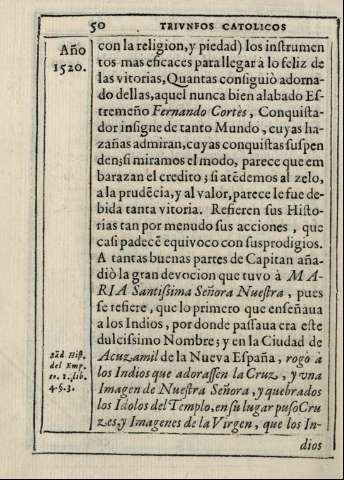 50 TRIVNFOS CATOLICOS
Año
1520.
con la religion, y piedad) los instrumen
tos mas eficaces para llegar à lo feliz de
las vitorias, Quantas consiguiò adorna-
do dellas, aquel nunca bien alabado Es-
tremeño Fernando Cortès, Conquista-
dor insigne de tanto Mundo, cuyas ha-
zañas admiran, cuyas conquistas suspen
den; si miramos el modo, parece que em
barazan el credito; si atẽdemos al zelo,
a la prudẽcia, y al valor, parece le fue de-
bida tanta vitoria. Refieren sus Histo-
rias tan por menudo sus acciones, que
casi padecẽ equivoco con sus prodigios.
A tantas buenas partes de Capitan aña-
diò la gran devocion que tuvo à MA-
RIA Santissima Señora Nuestra, pues
se refiere, que lo primero que enseñaua
a los Indios, por donde passaua era este
dulcissimo Nombre; y en la Ciudad de
Acuzamil de la Nueva España, rogò a
los Indios que adorassen la Cruz, y vna
Imagen de Nuestra Señora, y quebrados
los Idolos del Templo, en su lugar puso Cru
zes, y Imagenes de la Virgen, que los In-
dios
Sãd. Hist.
del Emp.
to. 1. lib.
4. §. 3.